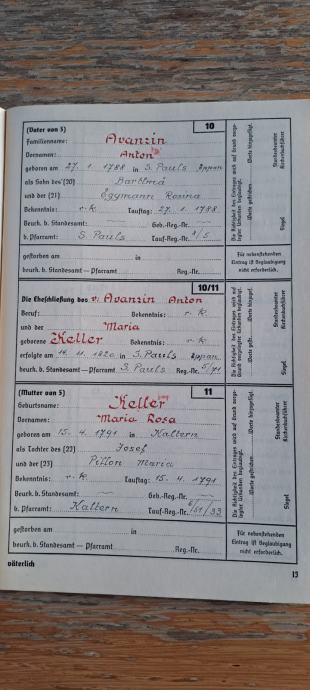 (Vater von 5) 10
Familienname: Avanzin
Vornamen: Anton
geboren am 27. 1. 1788 in S. Pauls Eppan
als Sohn des (20) Bartlmä
und der (21) Eggmann Rosina
Bekenntnis: r. k. Tauftag: 27. 1. 1788
Beurk. b. Standesamt: Geb.-Reg.-Nr.
b. Pfarramt: S. Pauls Tauf-Reg.-Nr.
gestorben am in
beurk. b. Standesamt — Pfarramt Reg.-Nr.
Die Richtigkeit des Eintrages wird auf Grund vorgelegter Urkunden beglaubigt.
Worte gestrichen. Worte hinzugefügt.
Standesbeamter
Kirchenbuchführer
Siegel
Für nebenstehenden
Eintrag ist Beglaubigung
nicht erforderlich.
10/11
Die Eheschließung des v. Avanzin Anton
Beruf: Bekenntnis: r. k.
und der Maria
geborene Keller Bekenntnis: r. k.
erfolgte am 14. 11. 1820 in S. Pauls Eppan
beurk. b. Standesamt — Pfarramt S. Pauls Reg.-Nr. 5/71
Siegel
(Mutter von 5) 11
Geburtsname: Keller
Vornamen: Maria Rosa
geboren am 15. 4. 1791 in Kaltern
als Tochter des (22) Josef
und der (23) Pillon Maria
Bekenntnis: r. k. Tauftag: 15. 4. 1791
Beurk. b. Standesamt: Geb.-Reg.-Nr.
b. Pfarramt: Kaltern Tauf-Reg.-Nr.
gestorben am in
beurk. b. Standesamt — Pfarramt Reg.-Nr.
Die Richtigkeit des Eintrages wird auf Grund vorgelegter Urkunden beglaubigt.
Worte gestrichen. Worte hinzugefügt.
Standesbeamter
Kirchenbuchführer
Siegel
Für nebenstehenden
Eintrag ist Beglaubigung
nicht erforderlich.
väterlich
13